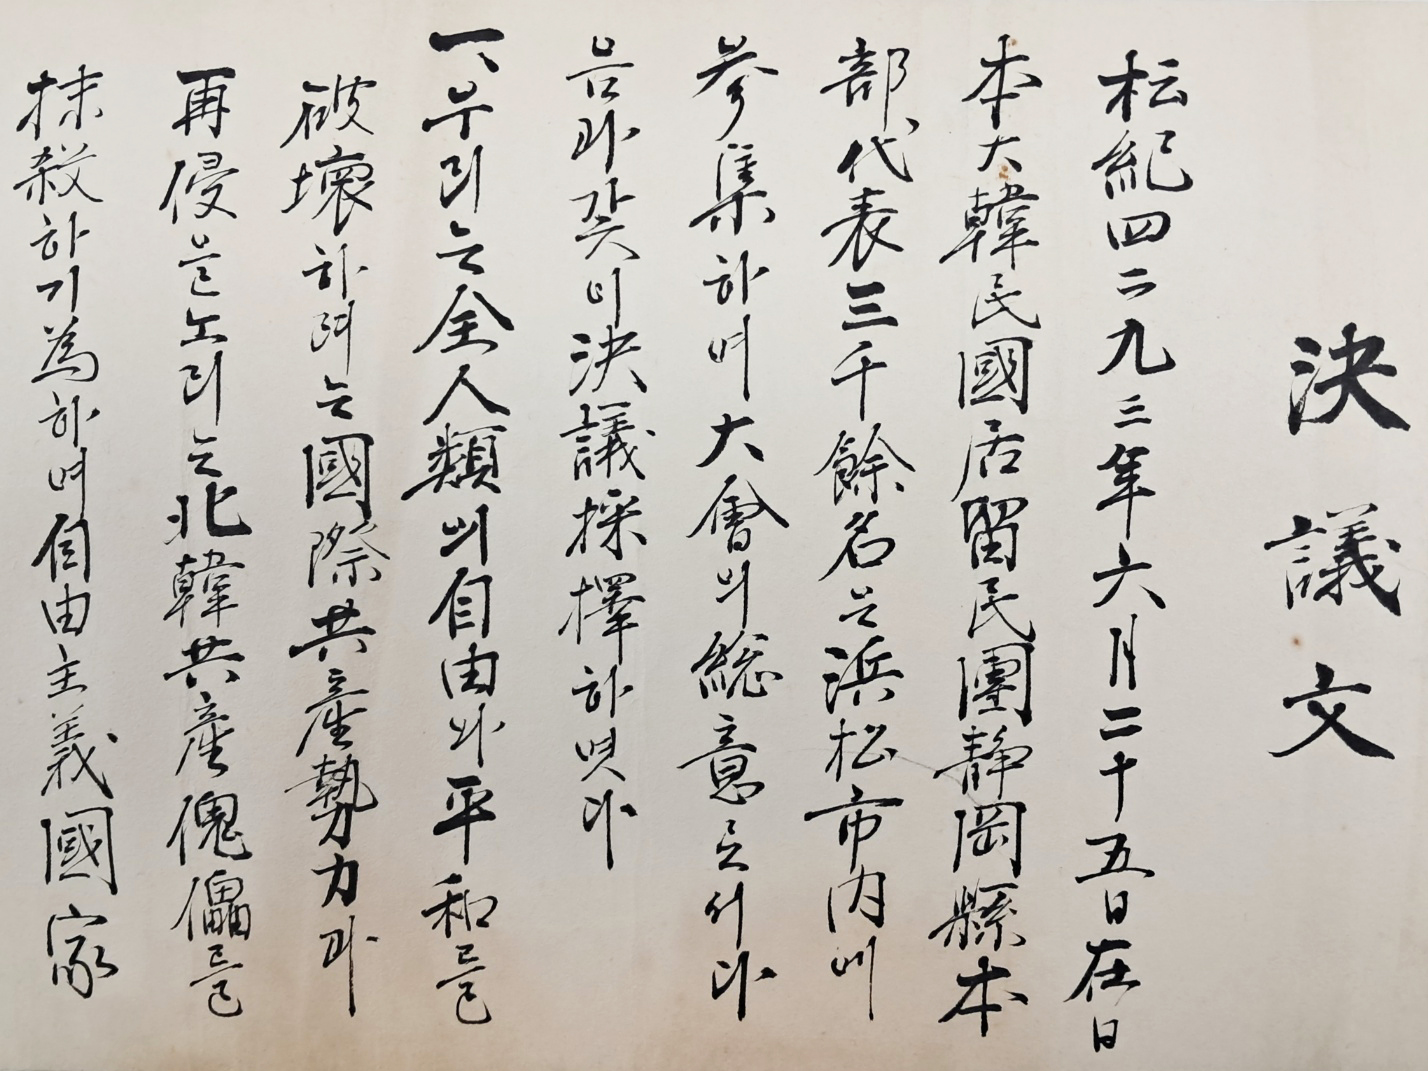 決議文
枟紀四二九三年六月二十五日在日
本大韓民國居留民團静岡縣本
部代表三千餘名는浜松市内에
參集하여大會의総意로서다
음과같이決議採擇하였다
一、우리는全人類의自由와平和를
破壞하려는國際共產勢力과
再侵을노리는北韓共產傀儡를
抹殺하기爲하여自由主義國家